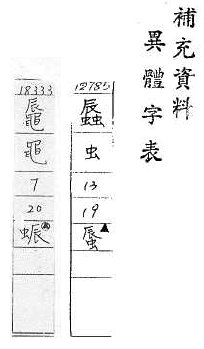 補充資料
異體字表
12785
虫
13
19
蜃
18333
黽
7
20
蜄